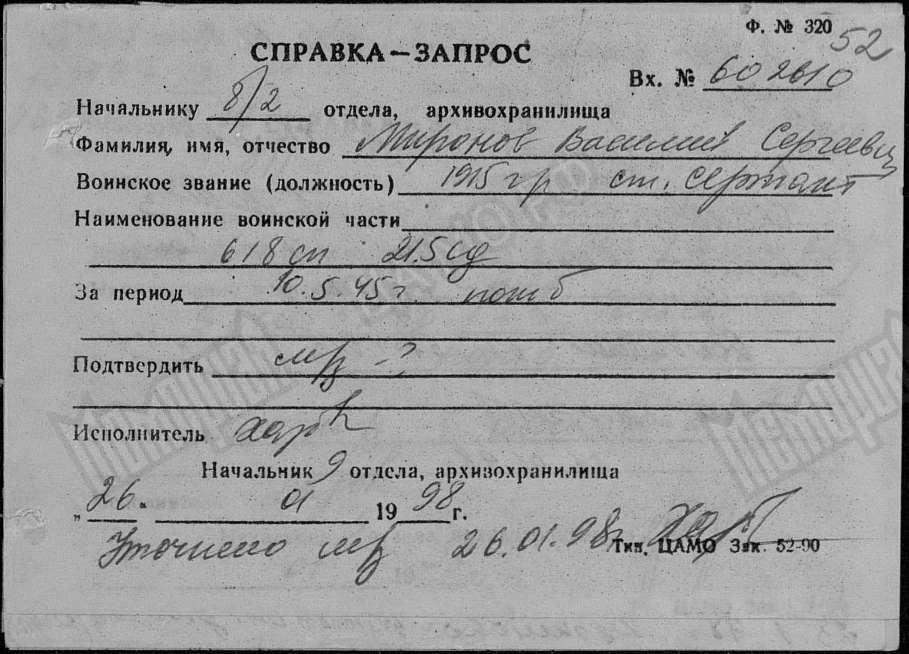 Ф. № 320
52
СПРАВКА — ЗАПРОС
Вх. № 602610
Начальнику 8/2 отдела, архивохранилища
Фамилия, имя, отчество Миронов Василий Сергеевич
Воинское звание (должность) 1915 гр ст. сержант
Наименование воинской части
618 сп 215 сд
За период 10.5.45 г. погиб
Подтвердить м/з - ?
Исполнитель
Начальник 9 отдела, архивохранилища
„26“ 01 1998 г.
Уточнено м/з 26.01.98г
Тип. ЦАМО Зак. 52-90
Мемориал
Мемориал